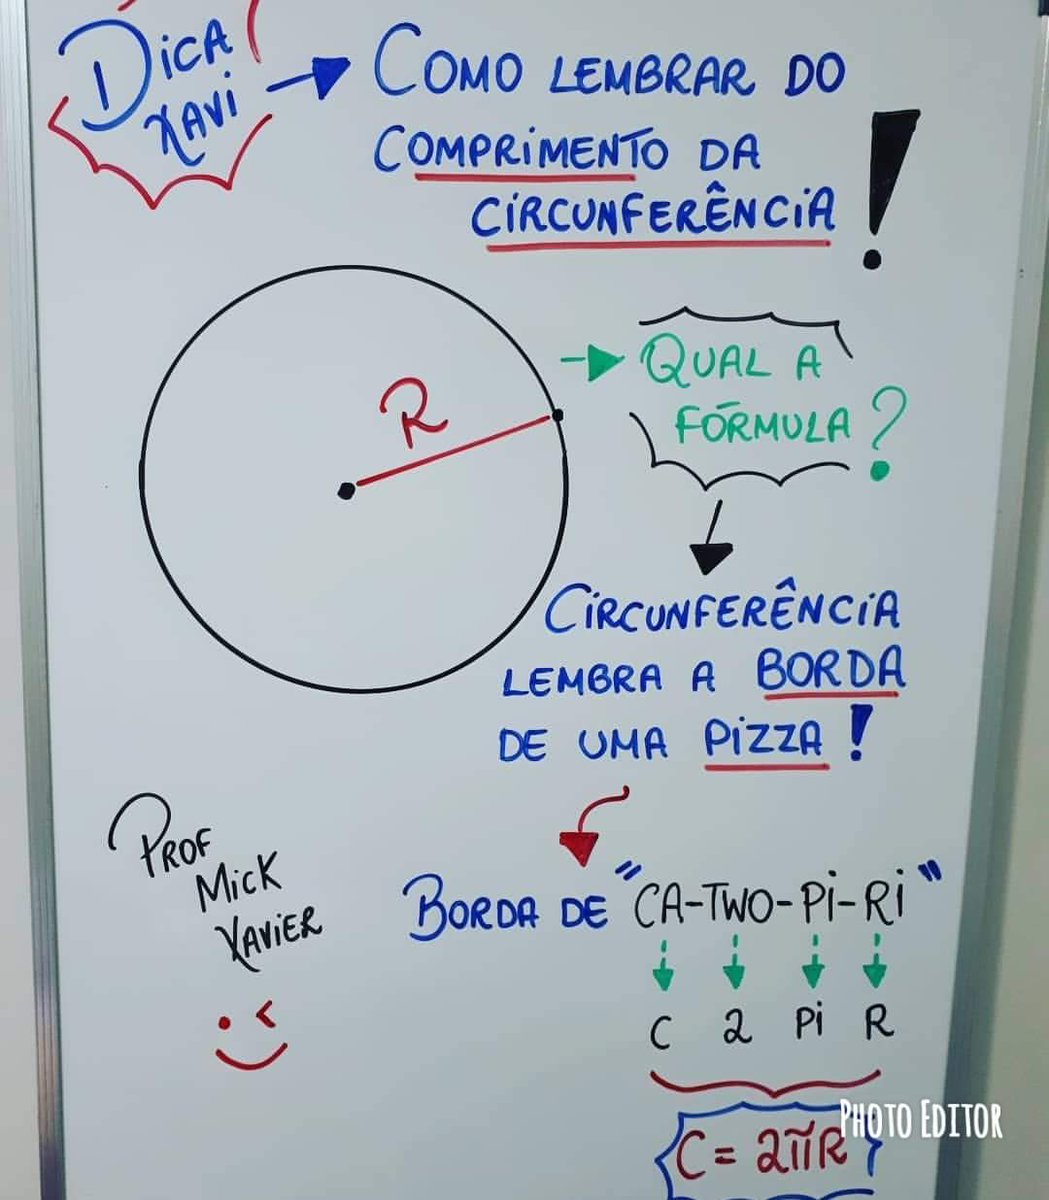 DICA
XAVI
COMO LEMBRAR DO
COMPRIMENTO DA
CIRCUNFERÊNCIA!
R
QUAL A
FÓRMULA?
CIRCUNFERÊNCIA
LEMBRA A BORDA
DE UMA PIZZA!
PROF
MICK
XAVIER
BORDA DE "CA-TWO-Pi-Ri"
C 2 Pi R
C = 2πR
PHOTO EDITOR